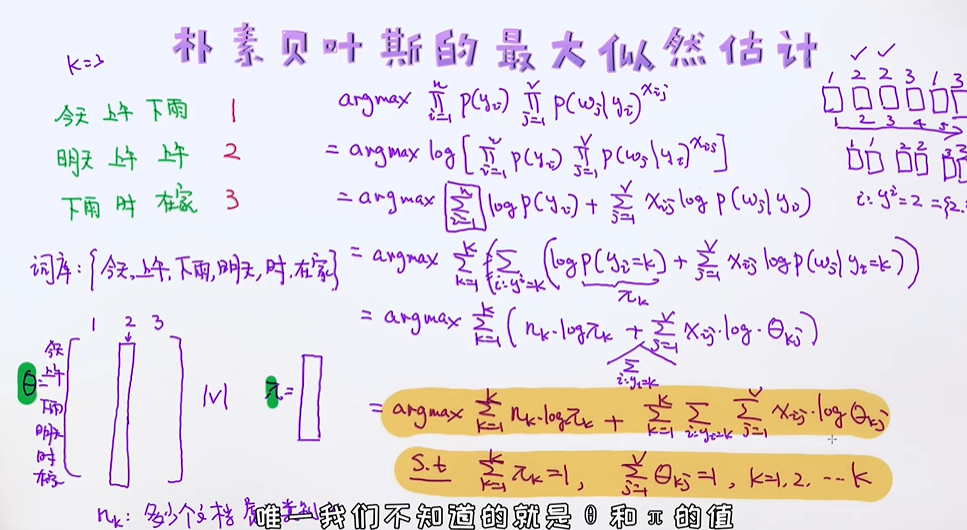 朴素贝叶斯的最大似然估计
K=3
今天 上午 下雨 1
明天 上午 上午 2
下雨 时 在家 3
词库:{今天,上午,下雨,明天,时,在家}
1 2 3
θ=
今天
上午
下雨
明天
时
在家
|V|
π=
argmax ∏_{i=1}^{n} p(y_i) ∏_{j=1}^{V} p(w_j|y_i)^{x_{ij}}
= argmax log[∏_{i=1}^{n} p(y_i) ∏_{j=1}^{V} p(w_j|y_i)^{x_{ij}}]
= argmax ∑_{i=1}^{n} log p(y_i) + ∑_{j=1}^{V} x_{ij} log p(w_j|y_i)
= argmax ∑_{k=1}^{K} (∑_{i:y^i=k} (log p(y_i=k) + ∑_{j=1}^{V} x_{ij} log p(w_j|y_i=k)))
π_k
= argmax ∑_{k=1}^{K} (n_k·log π_k + ∑_{j=1}^{V} x_{ij}·log·θ_{kj})
∑_{i:y_i=k}
= argmax ∑_{k=1}^{K} n_k·log π_k + ∑_{k=1}^{K} ∑_{i:y_i=k} ∑_{j=1}^{V} x_{ij}·log θ_{kj}
s.t ∑_{k=1}^{K} π_k=1, ∑_{j=1}^{V} θ_{kj}=1, k=1,2,…k
1 2 2 3 1 3
1 2 3 4 5
1 1 2 2 3 3
i:y^i=2={2,
n_k: 多少个文档
唯一我们不知道的就是θ和π的值